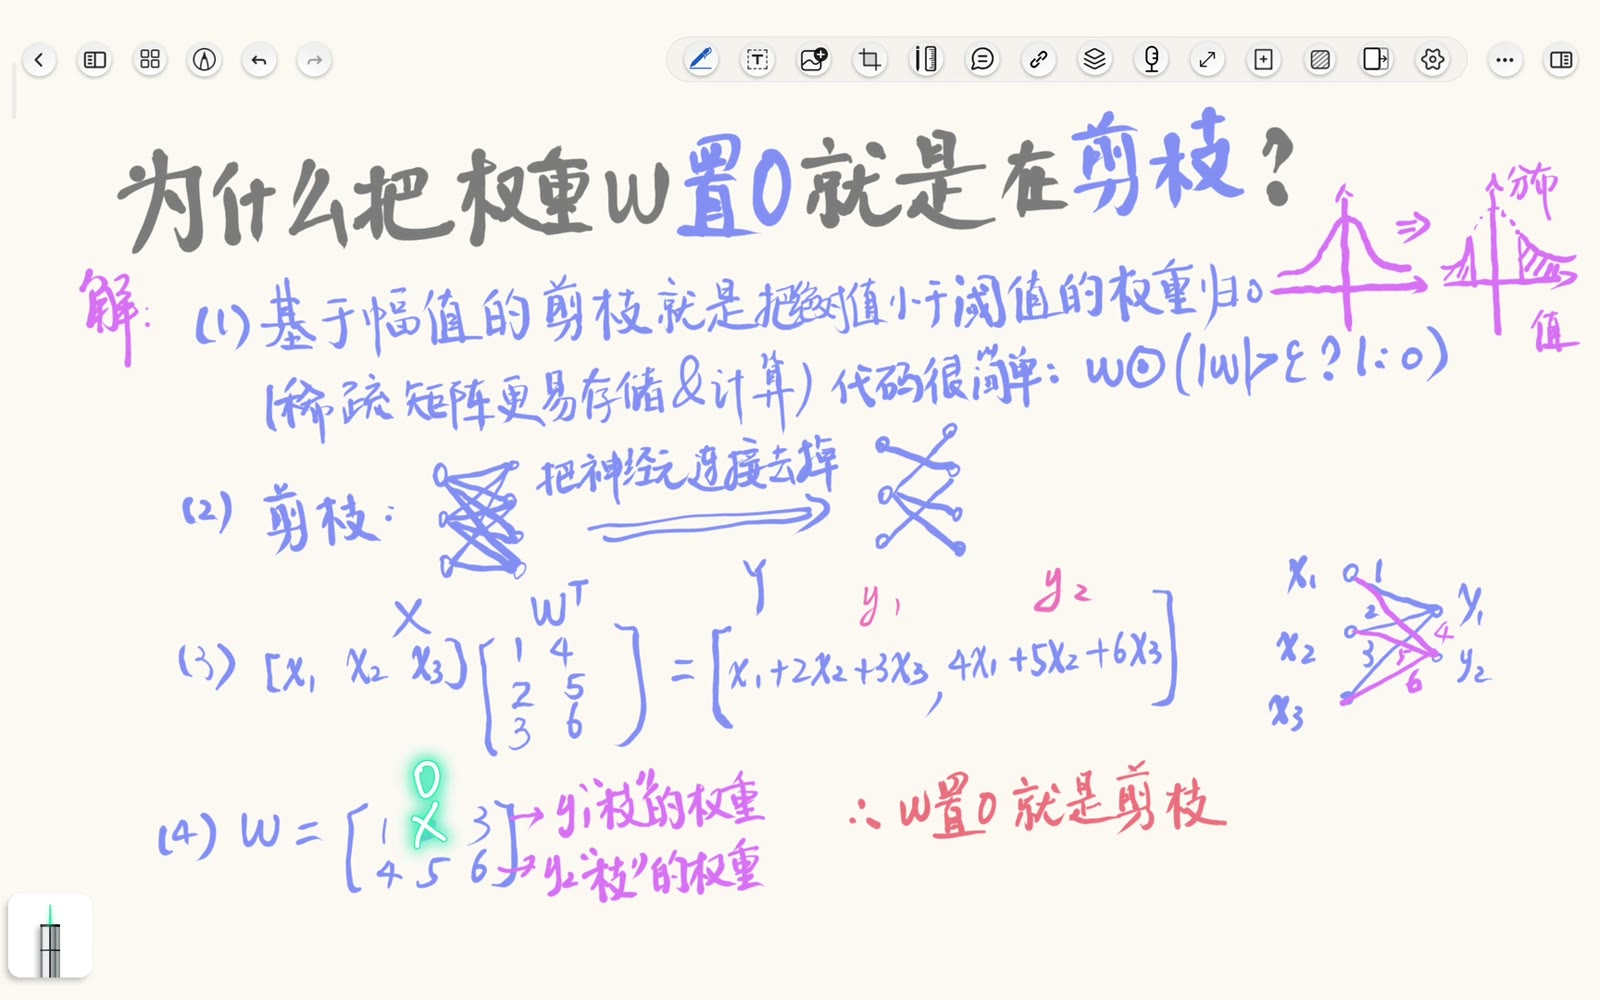 为什么把权重W置0就是在剪枝?
分布
值
解:
(1) 基于幅值的剪枝就是把绝对值小于阈值的权重归0
(稀疏矩阵更易存储&计算) 代码很简单: W⊙(|W|>ε?1:0)
(2) 剪枝: 把神经元连接去掉
X Wᵀ Y y₁ y₂
(3) [x₁ x₂ x₃] [1 4
2 5
3 6] = [x₁+2x₂+3x₃, 4x₁+5x₂+6x₃]
x₁ 1 y₁
2 4
x₂ 3 5 y₂
6
x₃
0
(4) W = [1 X 3 → y₁"枝"的权重
4 5 6] → y₂"枝"的权重
∴ W置0就是剪枝